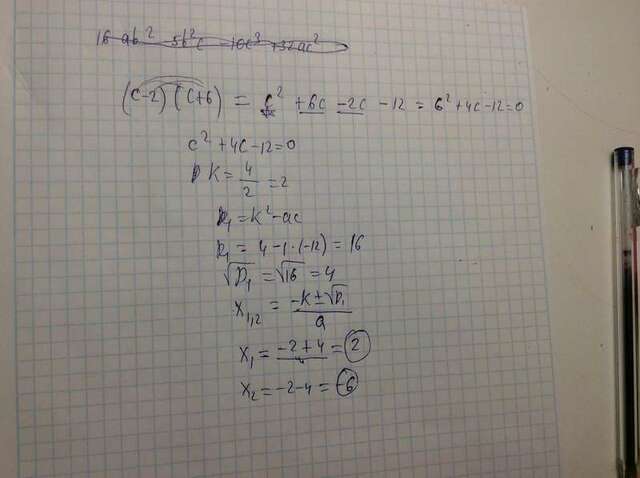 16 ab² - 5b²c - 10c³ + 32ac²
(c-2)(c+6) = c² + 6c - 2c - 12 = 6² + 4c - 12 = 0
c² + 4c - 12 = 0
K = 4/2 = 2
D₁ = K² - ac
D₁ = 4 - 1·(-12) = 16
√D₁ = √16 = 4
X₁,₂ = (-K ± √D₁)/a
X₁ = -2 + 4 = 2
X₂ = -2 - 4 = -6